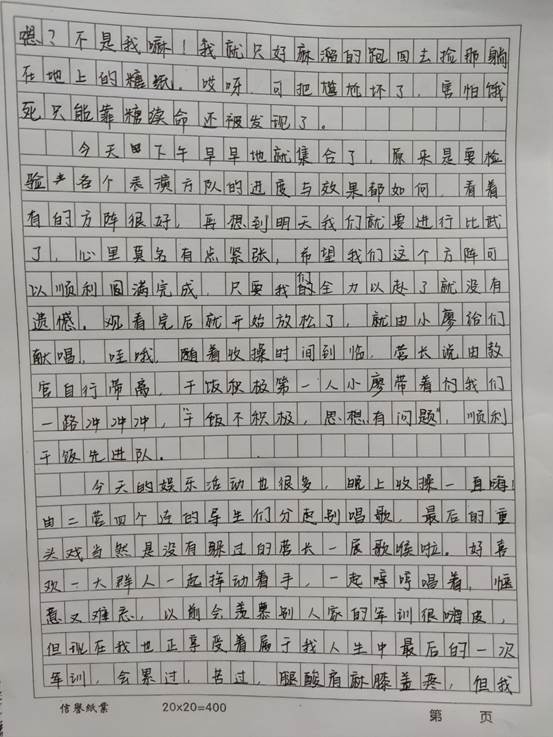 嗯？不是我嘛！我就只好麻溜的跑回去捡那躺
在地上的糖纸。哎呀，可把尴尬坏了，害怕饿
死只能靠糖续命还被发现了。
今天下午早早地就集合了，原来是要检
验各个表演方队的进度与效果都如何，看着
有的方阵很好，再想到明天我们就要进行比武
了，心里莫名有点紧张，希望我们这个方阵可
以顺利圆满完成，只要我们全力以赴了就没有
遗憾。观看完后就开始放松了，就由小廖给们
献唱，哇哦，随着收操时间到临，营长说由教
官自行带离，干饭积极第一人小廖带着他我们
一路冲冲冲，“干饭不积极，思想有问题”，顺利
干饭先进队。
今天的娱乐活动也很多，晚上收操一直嗨！
由二营四个连的导生们分别唱歌，最后的重
头戏当然是没有躲过的营长一展歌喉啦。好喜
欢一大群人一起挥动着手，一起哼哼唱着，惬
意又难忘，以前会羡慕别人家的军训很嗨皮，
但现在我也正享受着属于我人生中最后的一次
军训，会累过，苦过，腿酸肩麻膝盖疼，但我
信誉纸业 20x20=400 第 页